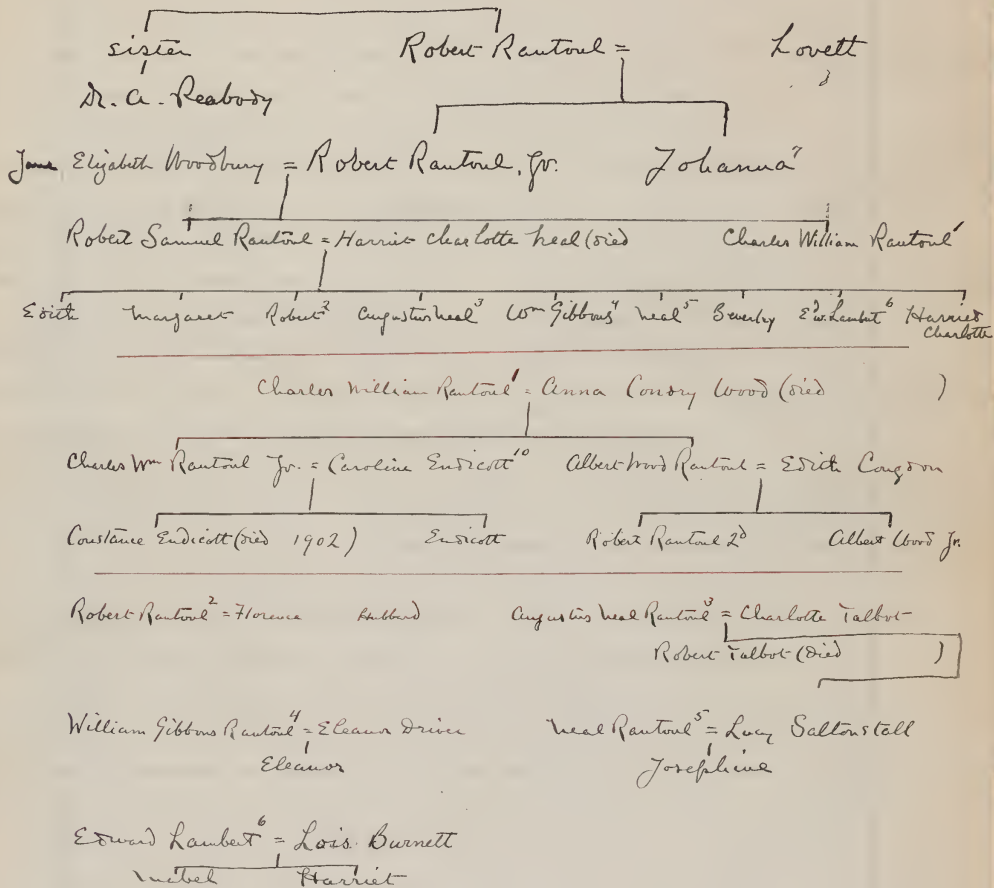 sister Robert Rantoul = Lovett
Dr. A. Peabody
Jane Elizabeth Woodbury = Robert Rantoul, Jr. Johanna 7
Robert Samuel Rantoul = Harriet Charlotte Neal (died Charles William Rantoul 1
Edith Margaret Robert 2 Augustus Neal 3 Wm Gibbons 4 Neal 5 Beverley Edw. Lambert 6 Harriet
Charlotte
Charles William Rantoul 1 = Anna Condry Wood (died )
Charles Wm Rantoul Jr. = Caroline Endicott 10 Albert Wood Rantoul = Edith Congdon
Constance Endicott (died 1902) Endicott Robert Rantoul 2d Albert Wood Jr.
Robert Rantoul 2 = Florence Hubbard Augustus Neal Rantoul 3 = Charlotte Talbot
Robert Talbot (died )
William Gibbons Rantoul 4 = Eleanor Driver Neal Rantoul 5 = Lucy Saltonstall
Eleanor Josephine
Edward Lambert 6 = Lois Burnett
Mabel Harriet